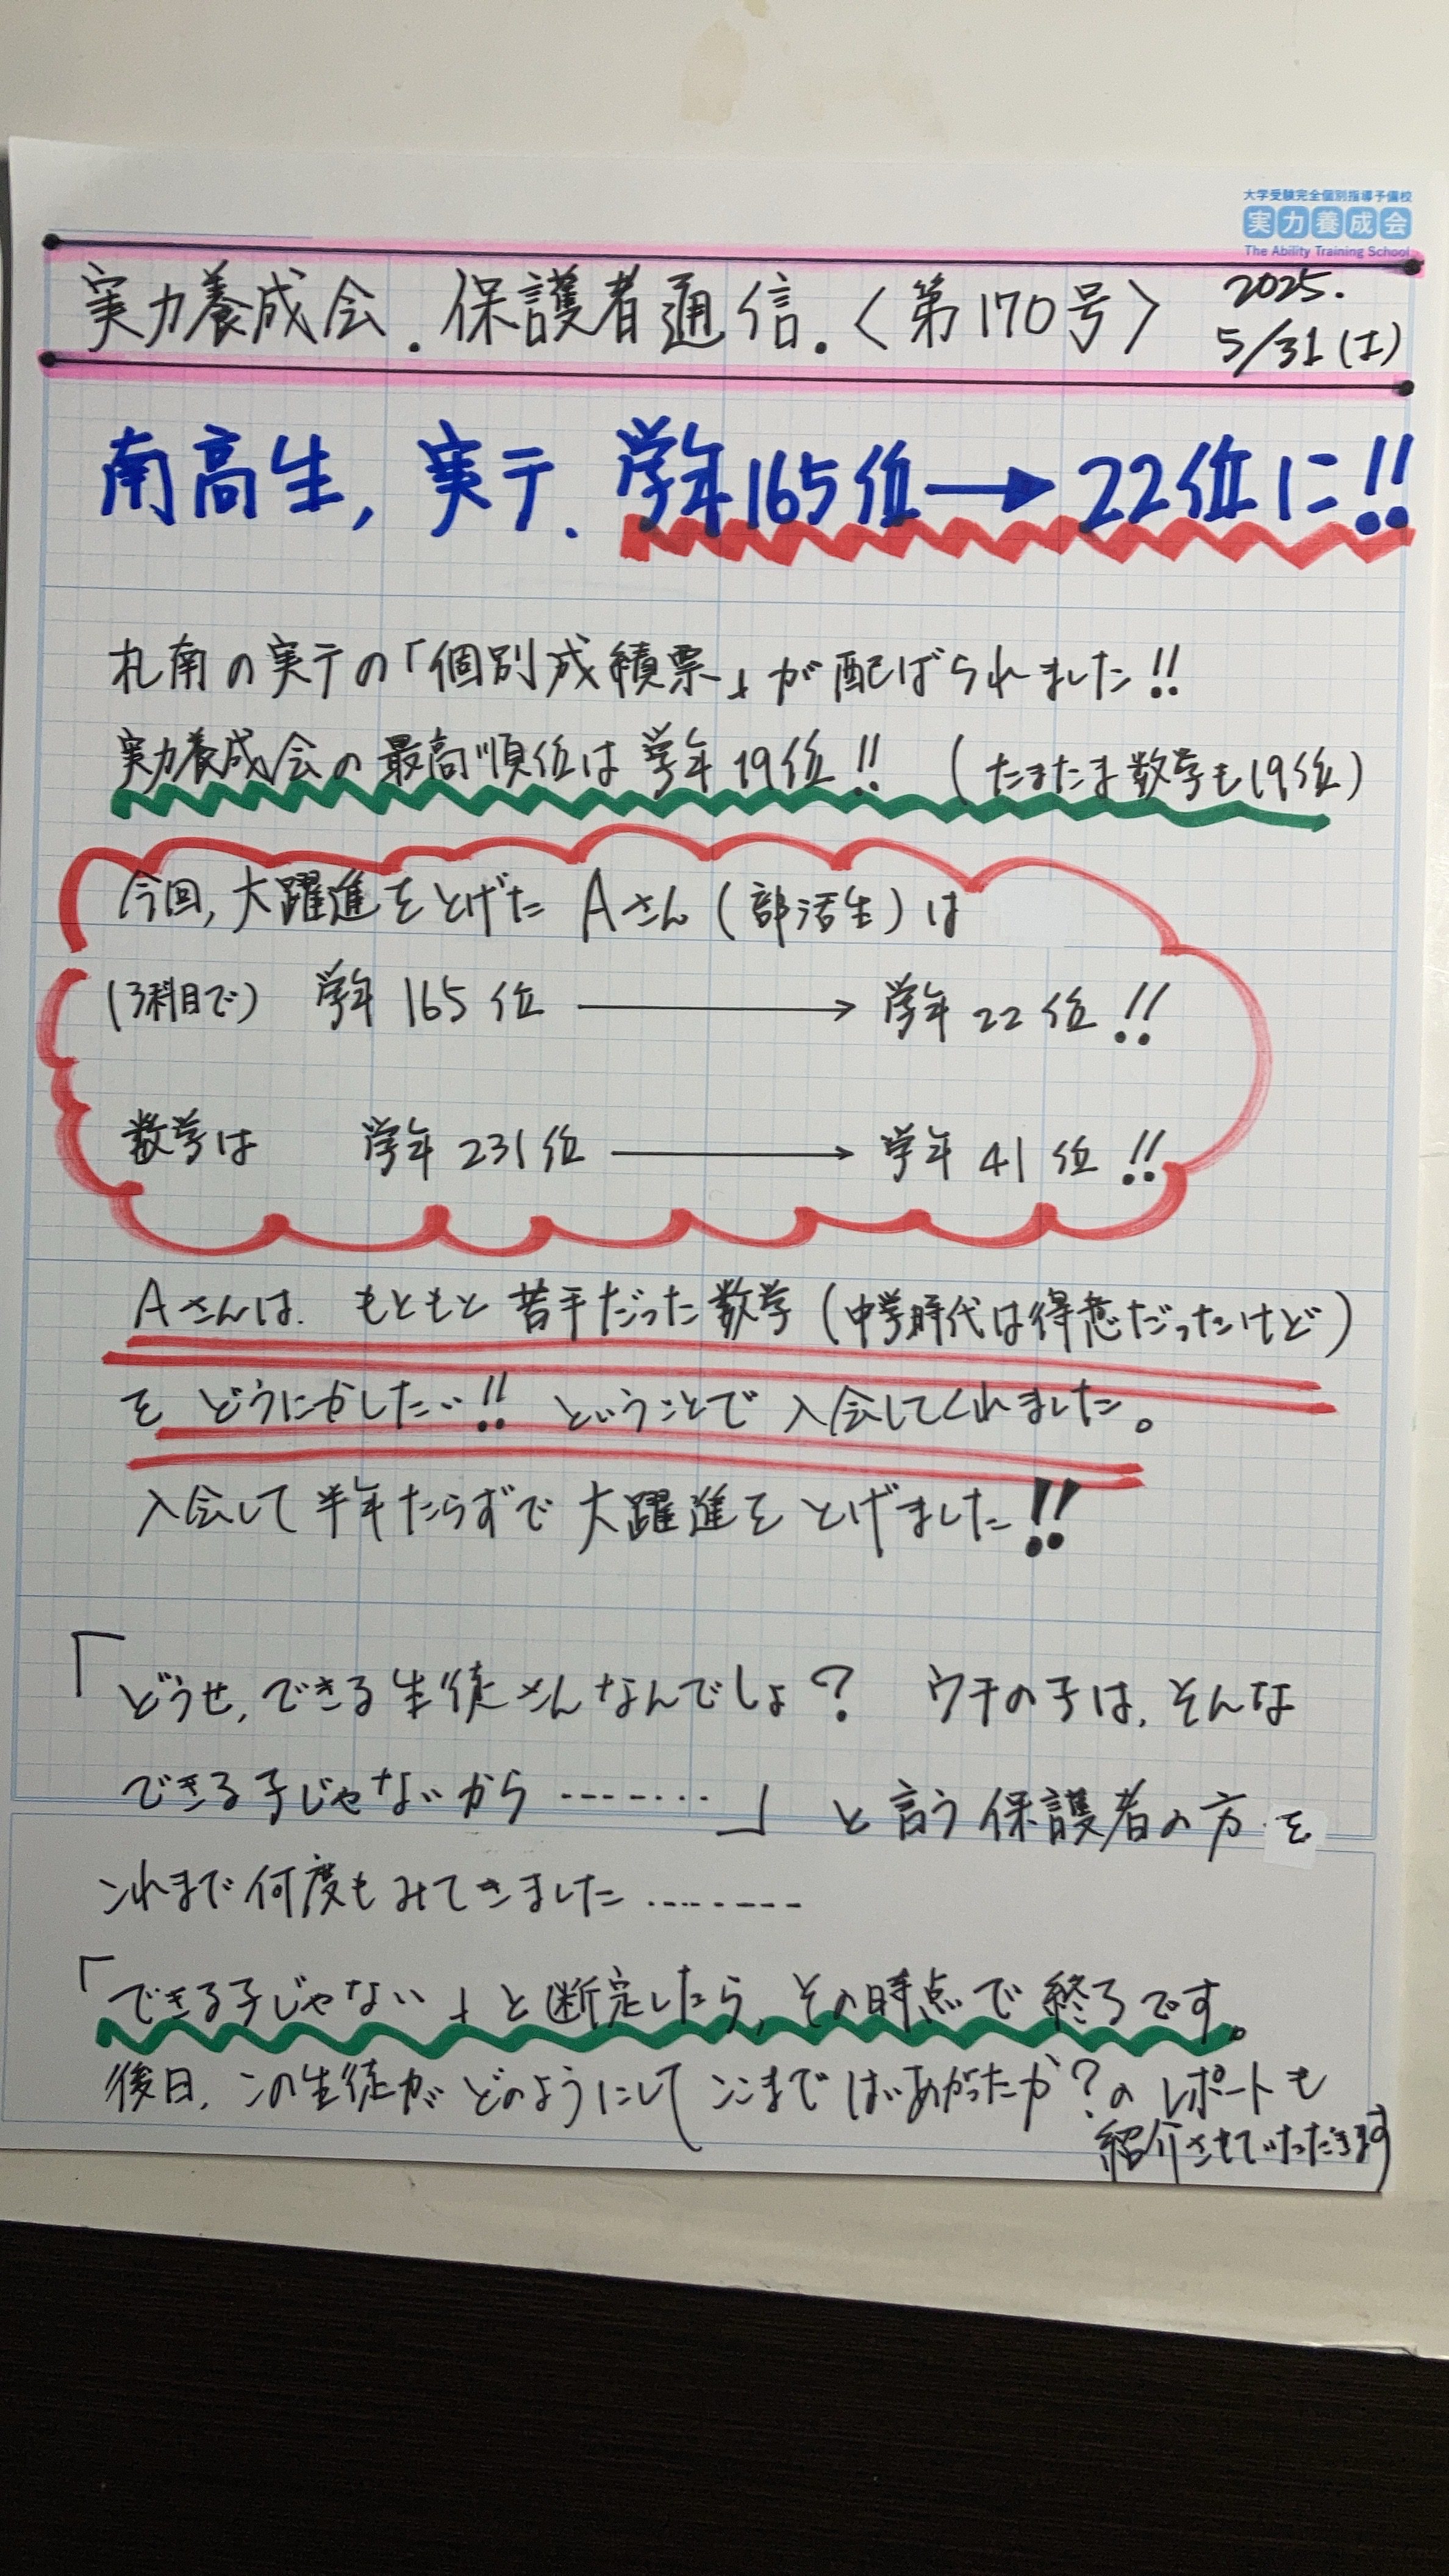 大学受験完全個別指導予備校
実力養成会
The Ability Training School
実力養成会.保護者通信.〈第170号〉
2025.
5/31(土)
南高生,実テ.学年165位→22位に!!
札南の実テの「個別成績票」が配ばられました!!
実力養成会の最高順位は学年19位!! (たまたま数学も19位)
今回,大躍進をとげた Aさん(部活生)は
(3科目で) 学年165位→学年22位!!
数学は 学年231位→学年41位!!
Aさんは.もともと苦手だった数学(中学時代は得意だったけど)
を どうにかしたい!! ということで入会してくれました。
入会して半年たらずで大躍進をとげました!!
「どうせ,できる生徒さんなんでしょ? ウチの子は,そんな
できる子じゃないから‥‥‥‥」と言う保護者の方を
これまで何度もみてきました‥‥‥‥
「できる子じゃない」と断定したら,その時点で終了です。
後日,この生徒がどのようにしてここまでばいあがったか?のレポートも
紹介させていただきます